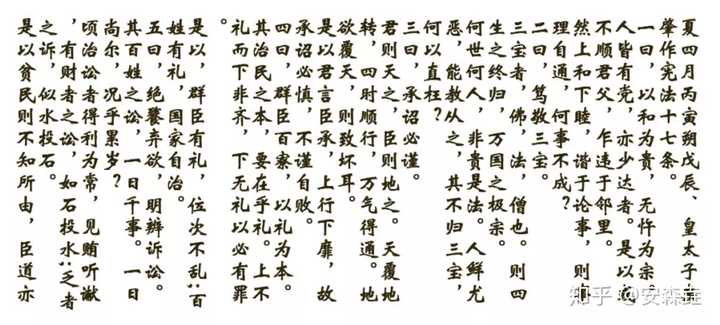 夏四月丙寅朔戊辰、皇太子
肇作宪法十七条。
一曰,以和为贵,无忤为宗。
人皆有党,亦少达者。是以
不顺君父,乍违于邻里。
然上和下睦,谐于论事,则
理自通,何事不成?
二曰,笃敬三宝。
三宝者,佛,法,僧也。则四
生之终归,万国之极宗。
何世何人,非贵是法。人鲜尤
恶,能教从之,其不归三宝,
何以直枉?
三曰,承诏必谨。
君则天之,臣则地之。天覆地
转,四时顺行,万气得通。地
欲覆天,则致坏耳。
是以君言臣承,上行下靡,故
承诏必慎,不谨自败。
四曰,群臣百寮,以礼为本。
其治民之本,要在乎礼。上不
礼而下非齐,下无礼以必有罪
。
是以,群臣有礼,位次不乱;百
姓有礼,国家自治。
五曰,绝餮弃欲,明辨诉讼。
其百姓之讼,一日千事。一日
尚尔,况乎累岁?
顷治讼者得利为常,见贿听谳
,有财者之讼,如石投水;乏者
之诉,似水投石。
是以贫民则不知所由,臣道亦
知乎 @安森垚